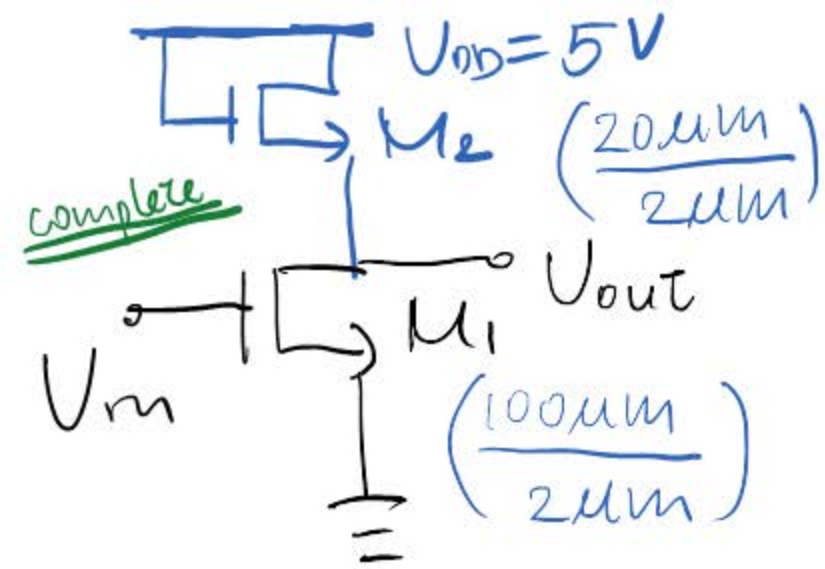 VDD=5V
M2
(20μm/2μm)
complete
Vout
M1
Vin
(100μm/2μm)